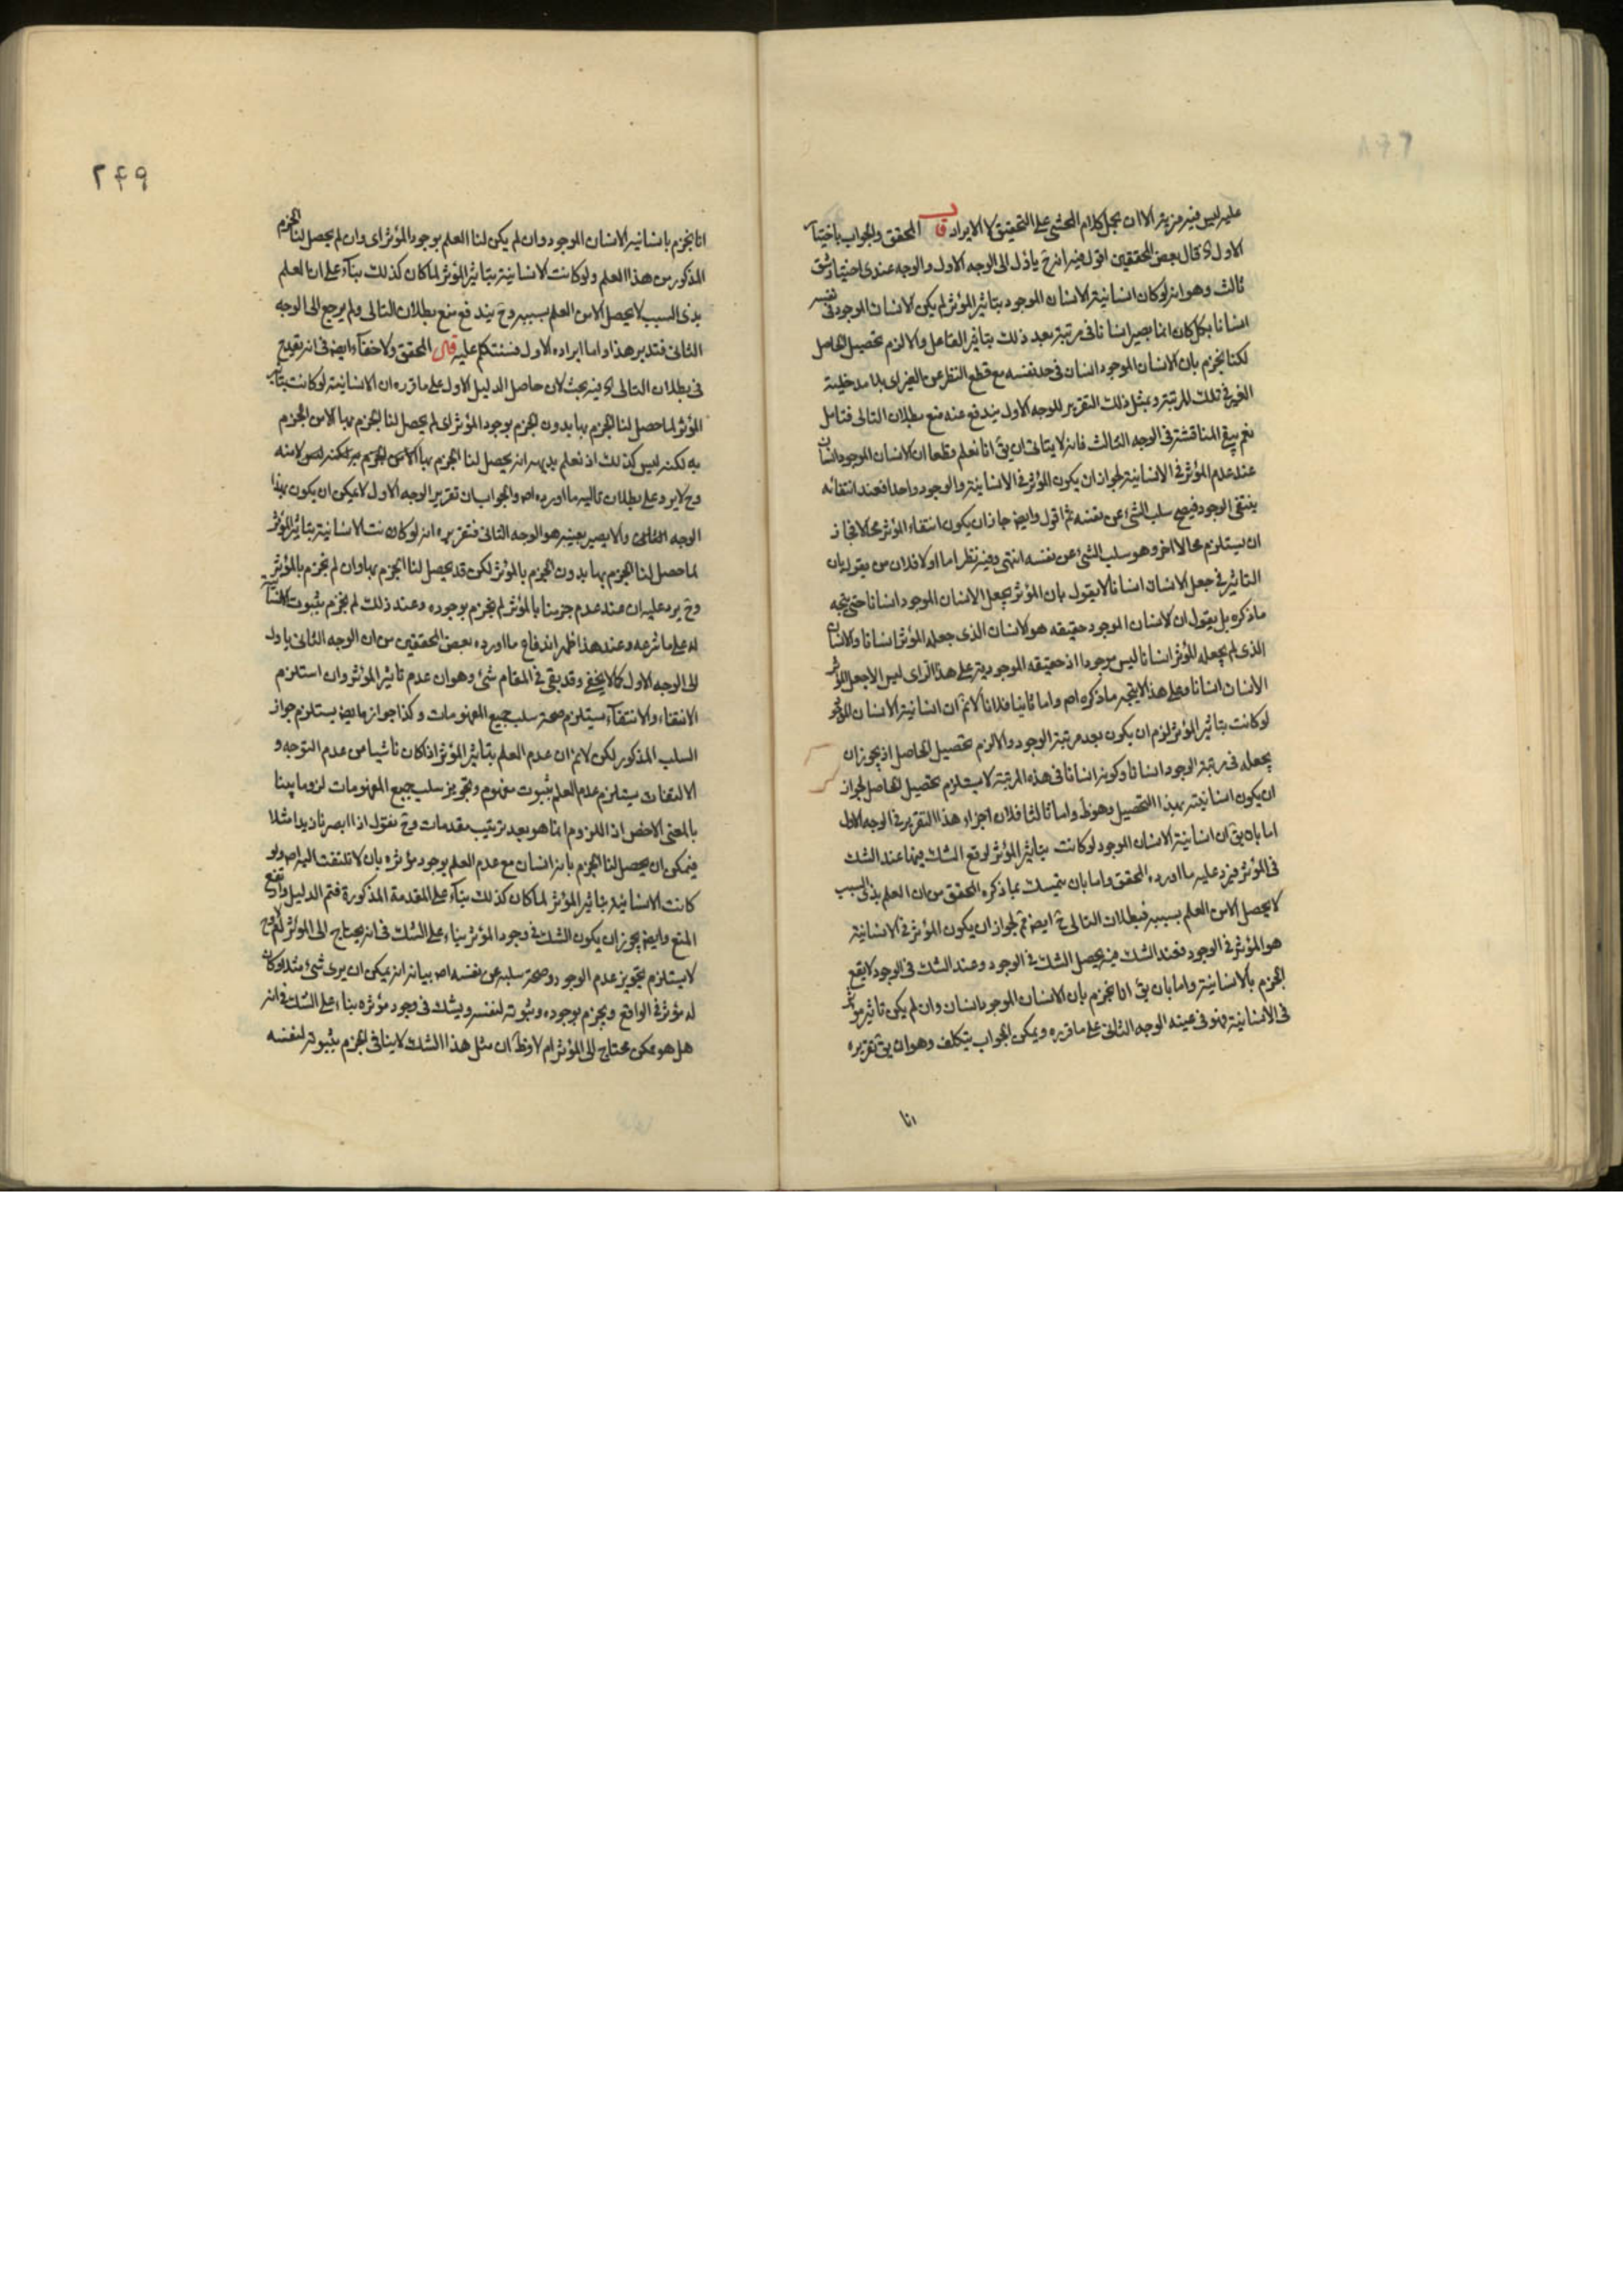 عليه ليس فيه مزية الا ان يحمل كلام المحشى على التحقيق لا الايراد قال المحقق والجواب باختيار
الاول اه قال بعض المحققين اقول فيه انه ح ياؤل الى الوجه الاول والوجه عندى اختيار شق
ثالث وهو انه لو كان انسانية الانسان الموجود بتاثير المؤثر لم يكن الانسان الموجود فى نفسه
انسانا بل كان انما يصير انسانا فى مرتبة بعد ذلك بتاثير الفاعل والا لزم تحصيل الحاصل
لكنا نجزم بان الانسان الموجود انسان فى حد نفسه مع قطع النظر عن الغير اى بلا مدخلية
الغير فى تلك المرتبة وبمثل ذلك التقرير للوجه الاول يندفع عنه منع بطلان التالى فتامل
نعم يبقى المناقشة فى الوجه الثالث فانه لا يتاتى ان يق انا نعلم قطعا ان الانسان الموجود انسان
عند عدم المؤثر فى الانسانية لجواز ان يكون المؤثر فى الانسانية والوجود واحدا فعند انتفائه
ينتفى الوجود فيصح سلب الشئ عن نفسه ثم اقول وايضا جاز ان يكون انتفاء المؤثر محالا فجاز
ان يستلزم محالا اخر وهو سلب الشئ عن نفسه انتهى وفيه نظر اما اولا فلان من يقول بان
التاثير فى جعل الانسان انسانا لا يقول بان المؤثر يجعل الانسان الموجود انسانا حتى يتجه
ما ذكره بل يقول ان الانسان الموجود حقيقه هو الانسان الذى جعله المؤثر انسانا والانسان
الذى لم يجعله المؤثر انسانا ليس موجودا اذ حقيقه الموجودية على هذا الراى ليس الا جعل المؤثر
الانسان انسانا فعلى هذا لا يتجه ما ذكره اصلا واما ثانيا فلانا لا نم ان انسانية الانسان الموجود
لو كانت بتاثير المؤثر لزم ان يكون بعد مرتبة الوجود والا لزم تحصيل الحاصل اذ يجوز ان
يجعله فى رتبة الوجود انسانا وكونه انسانا فى هذه المرتبة لا يستلزم تحصيل الحاصل لجواز
ان يكون انسانيته بهذا التحصيل وهو ظ واما ثالثا فلان اجراء هذا التقرير فى الوجه الاول
اما بان يق ان انسانية الانسان الموجود لو كانت بتاثير المؤثر لوقع الشك فيها عند الشك
فى المؤثر فيرد عليه ما اورده المحقق واما بان يتمسك بما ذكره المحقق من ان العلم بذى السبب
لا يحصل الا من العلم بسببه فبطلان التالى ح ايضا ثم لجواز ان يكون المؤثر فى الانسانية
هو المؤثر فى الوجود فعند الشك فيه يحصل الشك فى الوجود وعند الشك فى الوجود لا يقع
الجزم بالانسانية واما بان يق انا نجزم بان الانسان الموجود انسان وان لم يكن تاثير مؤثر
فى الانسانية فهو فى عينه الوجه الثانى على ما قرره ويمكن الجواب بتكلف وهو ان يق تقريره
انا
٢٤٩
انا نجزم بانسانية الانسان الموجود وان لم يكن لنا العلم بوجود المؤثر اى وان لم يحصل لنا الجزم
المذكور من هذا العلم ولو كانت الانسانية بتاثير المؤثر لما كان كذلك بناء على ان العلم
بذى السبب لا يحصل الا من العلم بسببه وح يندفع منع بطلان التالى ولم يرجع الى الوجه
الثانى فتدبر هذا واما ايراده الاول فسنتكلم عليه قال المحقق ولا خفاء ايضا فى انه يقدح
فى بطلان التالى اه فيه بحث لان حاصل الدليل الاول على ما قرره ان الانسانية لو كانت بتاثير
المؤثر لما حصل لنا الجزم بها بدون الجزم بوجود المؤثر اى لم يحصل لنا الجزم بها الا من الجزم
به لكنه ليس كذلك اذ نعلم بديهه انه يحصل لنا الجزم بها
وح لا يرد على بطلان تاليه ما اورده اصلا والجواب ان تقرير الوجه الاول لا يمكن ان يكون بهذا
الوجه والا يصير بعينه هو الوجه الثانى فتقريره انه لو كانت الانسانية بتاثير المؤثر
لما حصل لنا الجزم بها بدون الجزم بالمؤثر لكن قد يحصل لنا الجزم بها وان لم نجزم بالمؤثر
وح يرد عليه ان عند عدم جزمنا بالمؤثر لم نجزم بوجوده وعند ذلك لم نجزم بثبوت الانسانية
له على ما شرحه وعند هذا ظهر اندفاع ما اورده بعض المحققين من ان الوجه الثانى ياول
الى الوجه الاول كما لا يخفى وقد بقى فى المقام شئ وهو ان عدم تاثير المؤثر وان استلزم
الانتفاء والانتفاء يستلزم صحة سلب جميع المفهومات وكذا جوازها ايضا يستلزم جواز
السلب المذكور لكن لا نم ان عدم العلم بتاثير المؤثر اذا كان ناشيا من عدم التوجه و
الالتفات يستلزم عدم العلم بثبوت مفهوم وتجويز سلب جميع المفهومات لزوما بينا
بالمعنى الاخص اذ اللزوم انما هو بعد ترتيب مقدمات وح نقول اذا ابصرنا زيدا مثلا
فيمكن ان يحصل لنا الجزم بانه انسان مع عدم العلم بوجود مؤثره بان لا نلتفت اليه اصلا ولو
كانت الانسانية بتاثير المؤثر لما كان كذلك بناء على المقدمة المذكورة فتم الدليل واندفع
المنع وايضا يجوز ان يكون الشك فى وجود المؤثر بناء على الشك فى انه يحتاج الى المؤثر ام لا وح
لا يستلزم تجويز عدم الوجود وصحة سلبه عن نفسه اصلا بيانه انه يمكن ان يرى شئ مثلا وكان
له مؤثر فى الواقع ويجزم بوجوده وبثبوته لنفسه ويشك فى وجود مؤثره بناء على الشك فى انه
هل هو ممكن محتاج الى المؤثر ام لا وظ ان مثل هذا الشك لا ينافى الجزم بثبوته لنفسه